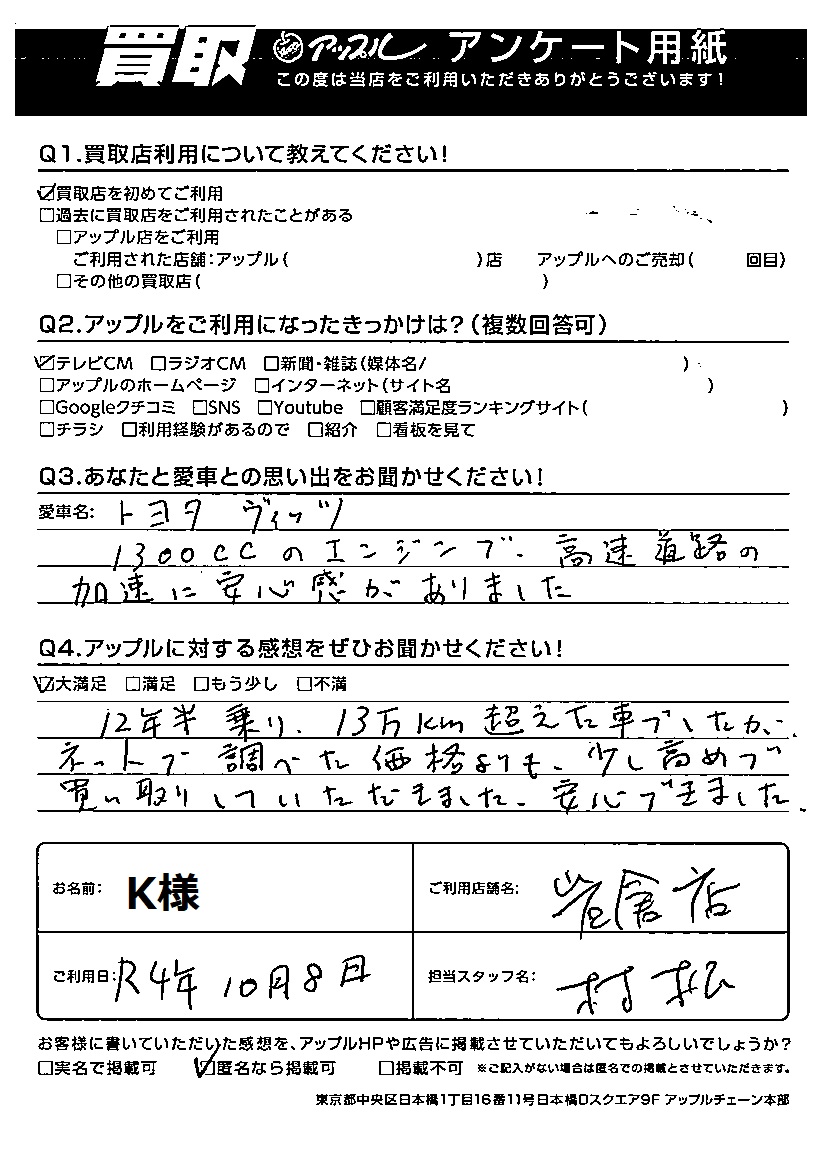 買取 アップル アンケート用紙
この度は当店をご利用いただきありがとうございます!
Q1.買取店利用について教えてください!
☑買取店を初めてご利用
□過去に買取店をご利用されたことがある
□アップル店をご利用
ご利用された店舗:アップル( )店 アップルへのご売却( 回目)
□その他の買取店( )
Q2.アップルをご利用になったきっかけは?(複数回答可)
☑テレビCM □ラジオCM □新聞・雑誌(媒体名/ )
□アップルのホームページ □インターネット(サイト名 )
□Googleクチコミ □SNS □Youtube □顧客満足度ランキングサイト( )
□チラシ □利用経験があるので □紹介 □看板を見て
Q3.あなたと愛車との思い出をお聞かせください!
愛車名: トヨタ ヴィッツ
1300ccのエンジンで、高速道路の
加速に安心感がありました
Q4.アップルに対する感想をぜひお聞かせください!
☑大満足 □満足 □もう少し □不満
12年半乗り、13万km超えた車でしたが、
ネットで調べた価格よりも、少し高めで
買い取りしていただきました。安心できました。
お名前: K様 ご利用店舗名: 岩倉店
ご利用日: R4年10月8日 担当スタッフ名: 村松
お客様に書いていただいた感想を、アップルHPや広告に掲載させていただいてもよろしいでしょうか?
□実名で掲載可 ☑匿名なら掲載可 □掲載不可 ※ご記入がない場合は匿名での掲載とさせていただきます。
東京都中央区日本橋1丁目16番11号日本橋Dスクエア9F アップルチェーン本部